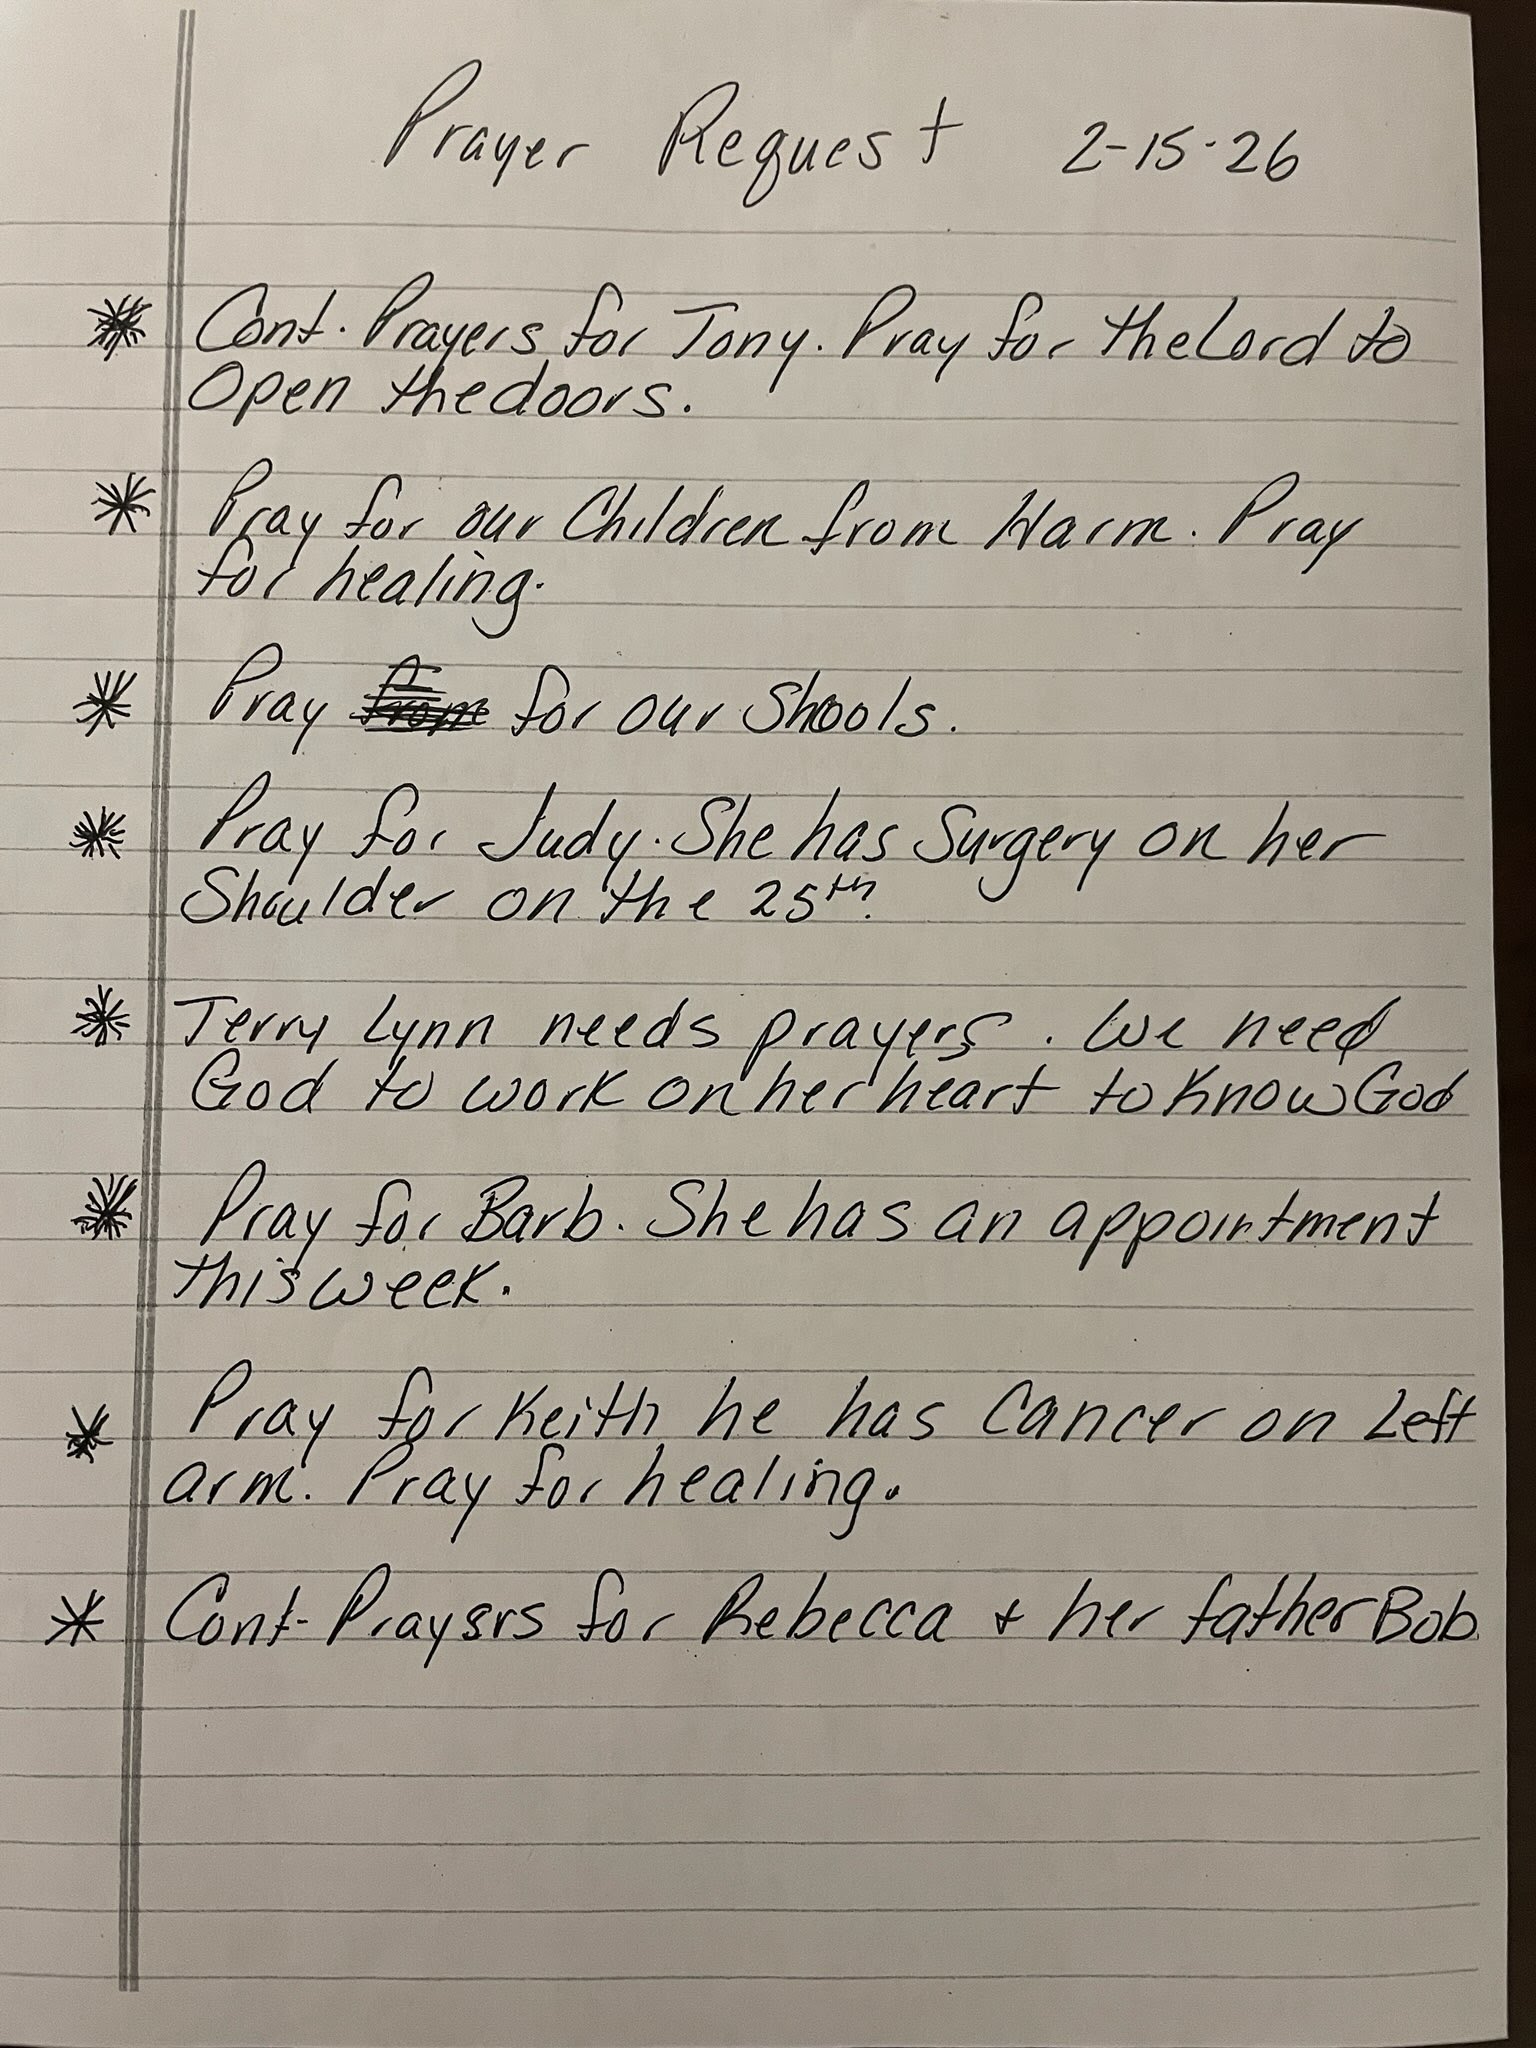 Prayer Request 2-15-26
* Cont. Prayers for Tony. Pray for the Lord to
Open the doors.
* Pray for our Children from Harm. Pray
for healing.
* Pray from for our Shools.
* Pray for Judy. She has Surgery on her
Shoulder on the 25th.
* Terry Lynn needs prayers. We need
God to work on her heart to Know God
* Pray for Barb. She has an appointment
this week.
* Pray for Keith he has Cancer on Left
arm. Pray for healing.
* Cont- Praysrs for Rebecca + her father Bob